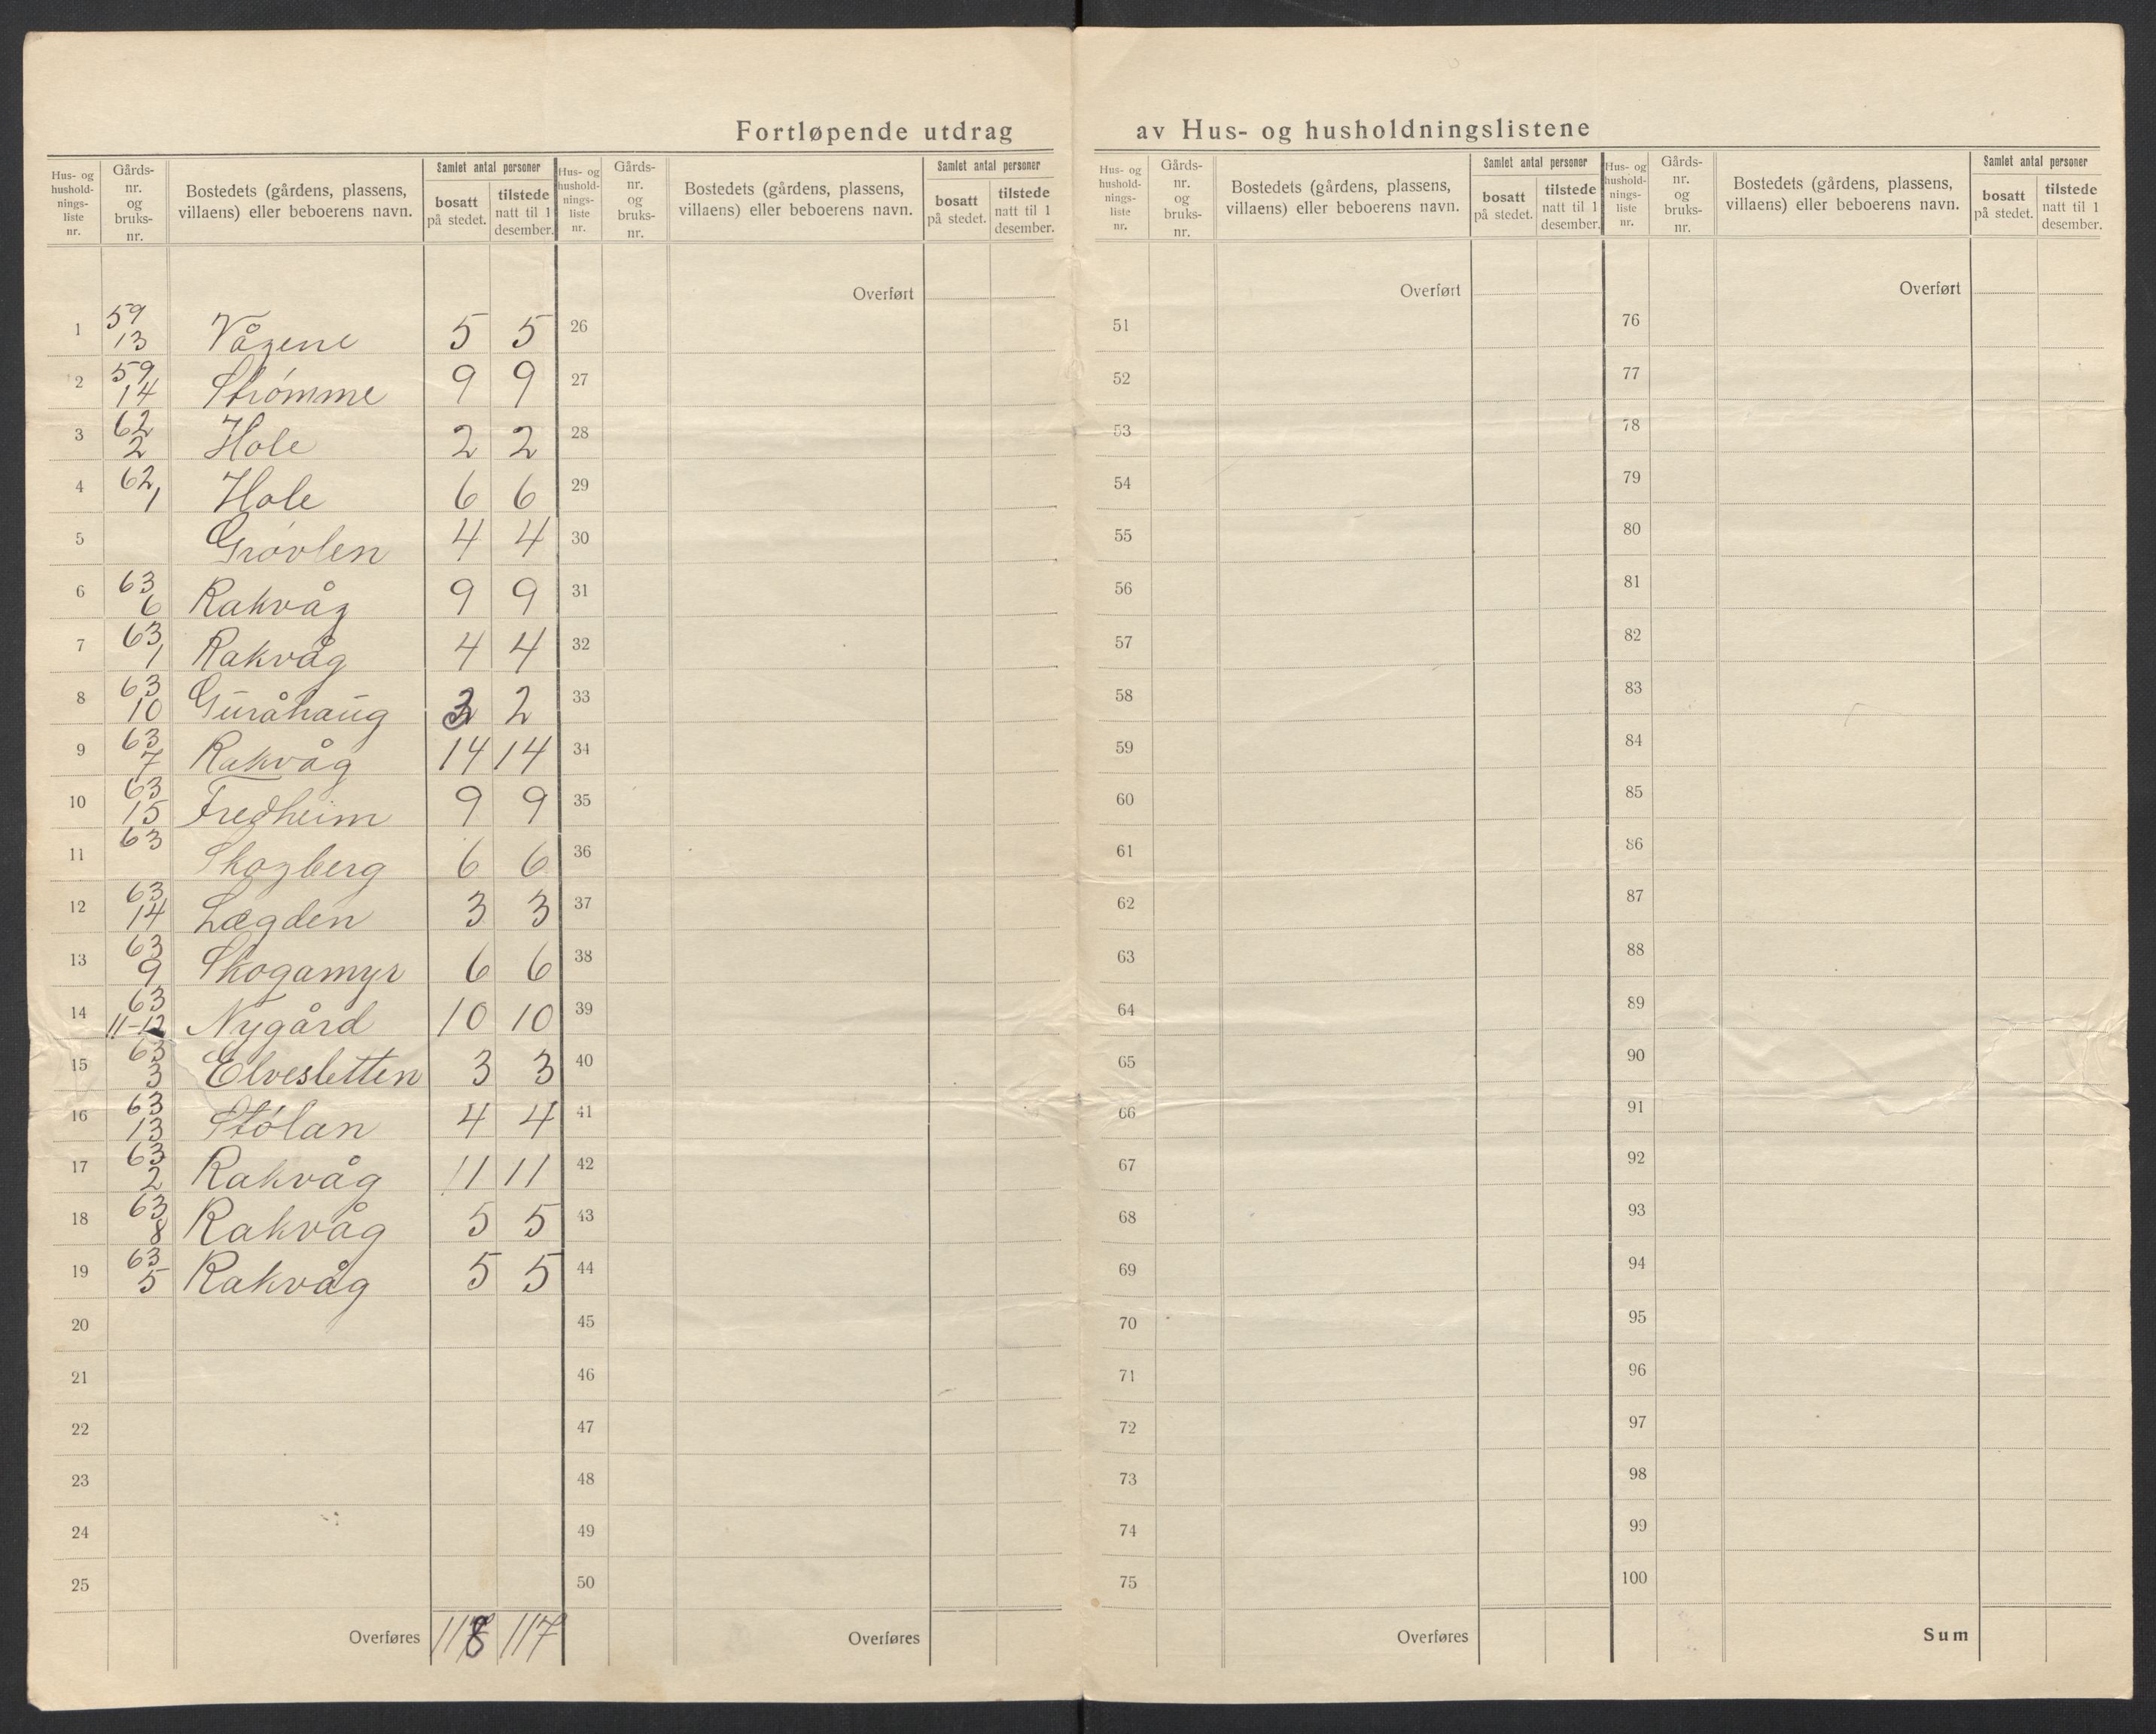 Fortløpende utdrag av Hus- og husholdningslistene
Hus- og husholdnings-liste nr. | Gårds-nr. og bruks-nr. | Bostedets (gårdens, plassens, villaens) eller beboerens navn. | Samlet antal personer bosatt på stedet. | tilstede natt til 1 desember.
Hus- og husholdnings-liste nr. | Gårds-nr. og bruks-nr. | Bostedets (gårdens, plassens, villaens) eller beboerens navn. | Samlet antal personer bosatt på stedet. | tilstede natt til 1 desember.
Hus- og husholdnings-liste nr. | Gårds-nr. og bruks-nr. | Bostedets (gårdens, plassens, villaens) eller beboerens navn. | Samlet antal personer bosatt på stedet. | tilstede natt til 1 desember.
Hus- og husholdnings-liste nr. | Gårds-nr. og bruks-nr. | Bostedets (gårdens, plassens, villaens) eller beboerens navn. | Samlet antal personer bosatt på stedet. | tilstede natt til 1 desember.
Overført Overført Overført
1 59 13 Vågene 5 5 26 51 76
2 59 14 Strømme 9 9 27 52 77
3 62 2 Hole 2 2 28 53 78
4 62 1 Hole 6 6 29 54 79
5 Grøvlen 4 4 30 55 80
6 63 6 Rakvåg 9 9 31 56 81
7 63 1 Rakvåg 4 4 32 57 82
8 63 10 Guråhaug 3 2 33 58 83
9 63 7 Rakvåg 14 14 34 59 84
10 63 15 Fredheim 9 9 35 60 85
11 63 Skogberg 6 6 36 61 86
12 63 14 Lægden 3 3 37 62 87
13 63 9 Skogamyr 6 6 38 63 88
14 63 11-12 Nygård 10 10 39 64 89
15 63 3 Elvesletten 3 3 40 65 90
16 63 13 Stølan 4 4 41 66 91
17 63 2 Rakvåg 11 11 42 67 92
18 63 8 Rakvåg 5 5 43 68 93
19 63 5 Rakvåg 5 5 44 69 94
20 45 70 95
21 46 71 96
22 47 72 97
23 48 73 98
24 49 74 99
25 50 75 100
Overføres 118 117 Overføres Overføres Sum